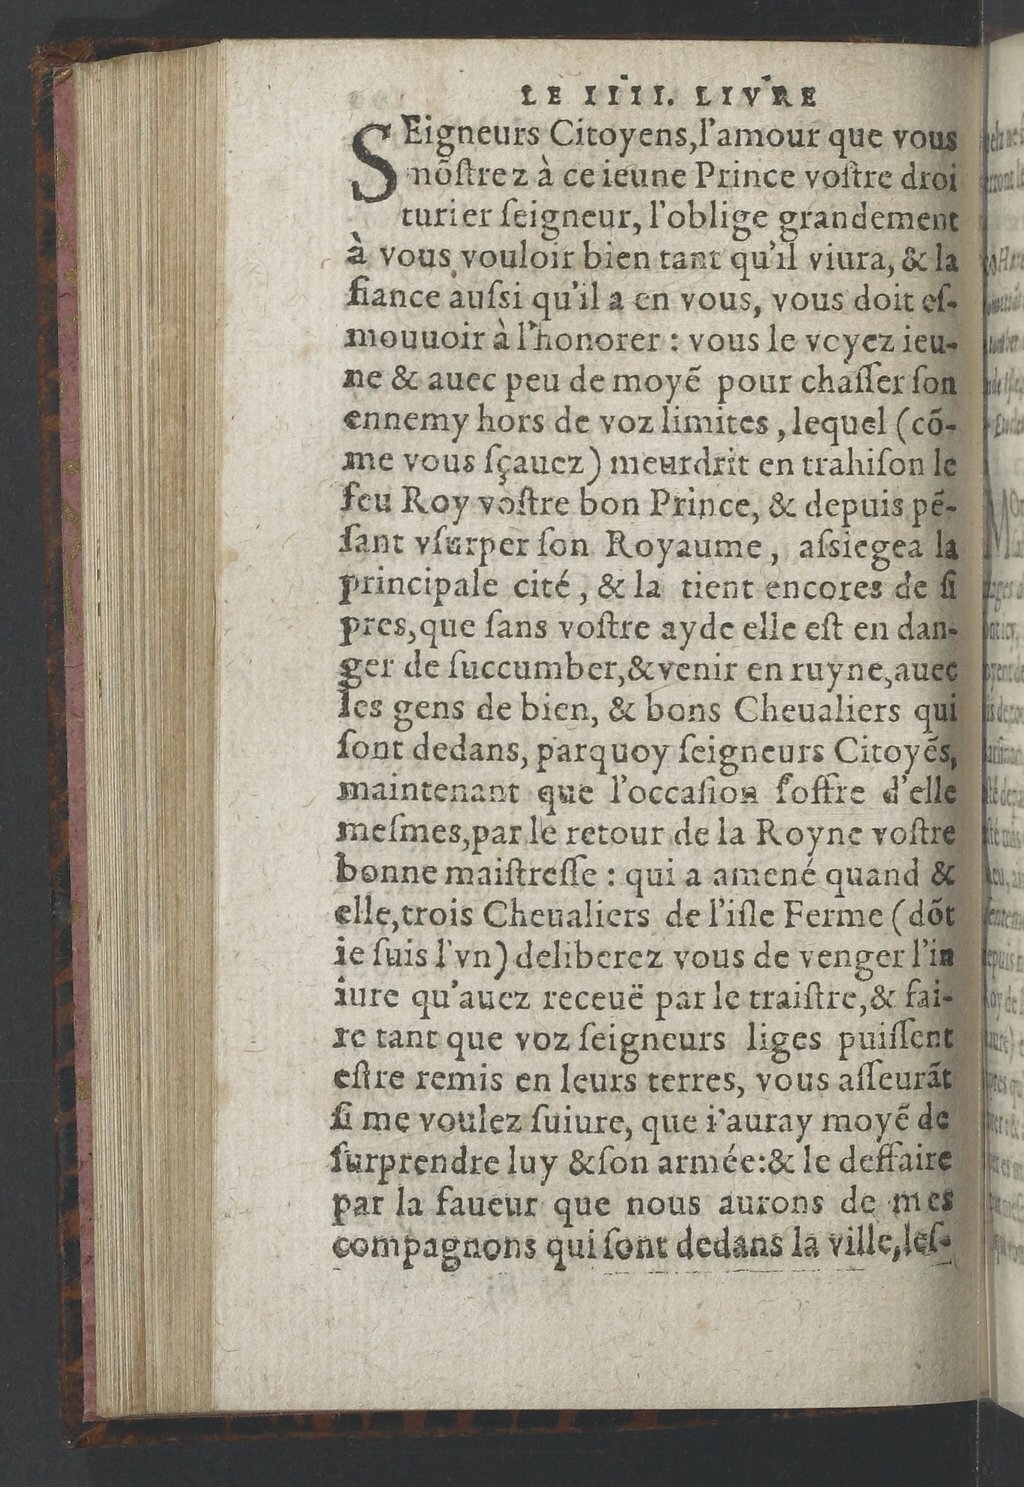 LE IIII. LIVRE
SEigneurs Citoyens,l'amour que vous
mõſtrez à ce ieune Prince voſtre droi
turier ſeigneur, l'oblige grandement
à vous vouloir bien tant qu'il viura, & la
fiance auſsi qu'il a en vous, vous doit eſ-
mouuoir à l'honorer : vous le voyez ieu-
ne & auec peu de moyẽ pour chaſſer ſon
ennemy hors de voz limites , lequel (cõ-
me vous ſçauez) meurdrit en trahiſon le
feu Roy voſtre bon Prince, & depuis pẽ-
ſant vſurper ſon Royaume , aſsiegea la
principale cité , & la tient encores de ſi
pres,que ſans voſtre ayde elle eſt en dan-
ger de ſuccumber,& venir en ruyne,auec
les gens de bien, & bons Cheualiers qui
ſont dedans, parquoy ſeigneurs Citoyẽs,
maintenant que l'occaſion ſ'offre d'elle
meſmes,par le retour de la Royne voſtre
bonne maiſtreſſe : qui a amené quand &
elle,trois Cheualiers de l'iſle Ferme (dõt
ie ſuis l'vn) deliberez vous de venger l'in
iure qu'auez receuë par le traiſtre,& fai-
re tant que voz ſeigneurs liges puiſſent
eſtre remis en leurs terres, vous aſſeurãt
ſi me voulez ſuiure, que i'auray moyẽ de
ſurprendre luy & ſon armée:& le deffaire
par la faueur que nous aurons de mes
compagnons qui ſont dedans la ville,leſ-